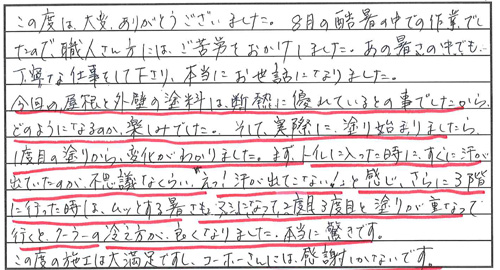 この度は、大変、ありがとうございました。8月の酷暑の中での作業でし
たので、職人さん方には、ご苦労をおかけしました。あの暑さの中でも、
丁寧な仕事をして下さり、本当にお世話になりました。
今回の屋根と外壁の塗料は、断熱に優れているとの事でしたから、
どのようになるのか、楽しみでした。そして、実際に、塗り始まりましたら、
1度目の塗りから、変化がわかりました。まず、トイレに入った時に、すぐに汗が
出ていたのが、不思議なくらい、えっ!汗が出てこない!と感じ、さらに3階
に行った時は、ムッとする暑さも、2度目3度目と塗りが重なって
行くと、クーラーの冷え方が、良くなりました。本当に驚きです。
この度の施工は大満足ですし、コーホーさんには、感謝しかないです。